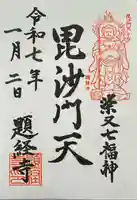 柴又七福神
毘沙門天
令和七年
一月二日
題経寺